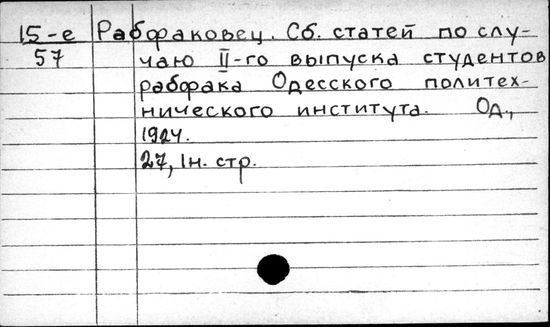 15-е Рабфаковец. Сб. статей по слу-
57 чаю II-го выпуска студентов
рабфака Одесского политех-
нического института. Од.,
1924.
27, 1н. стр.